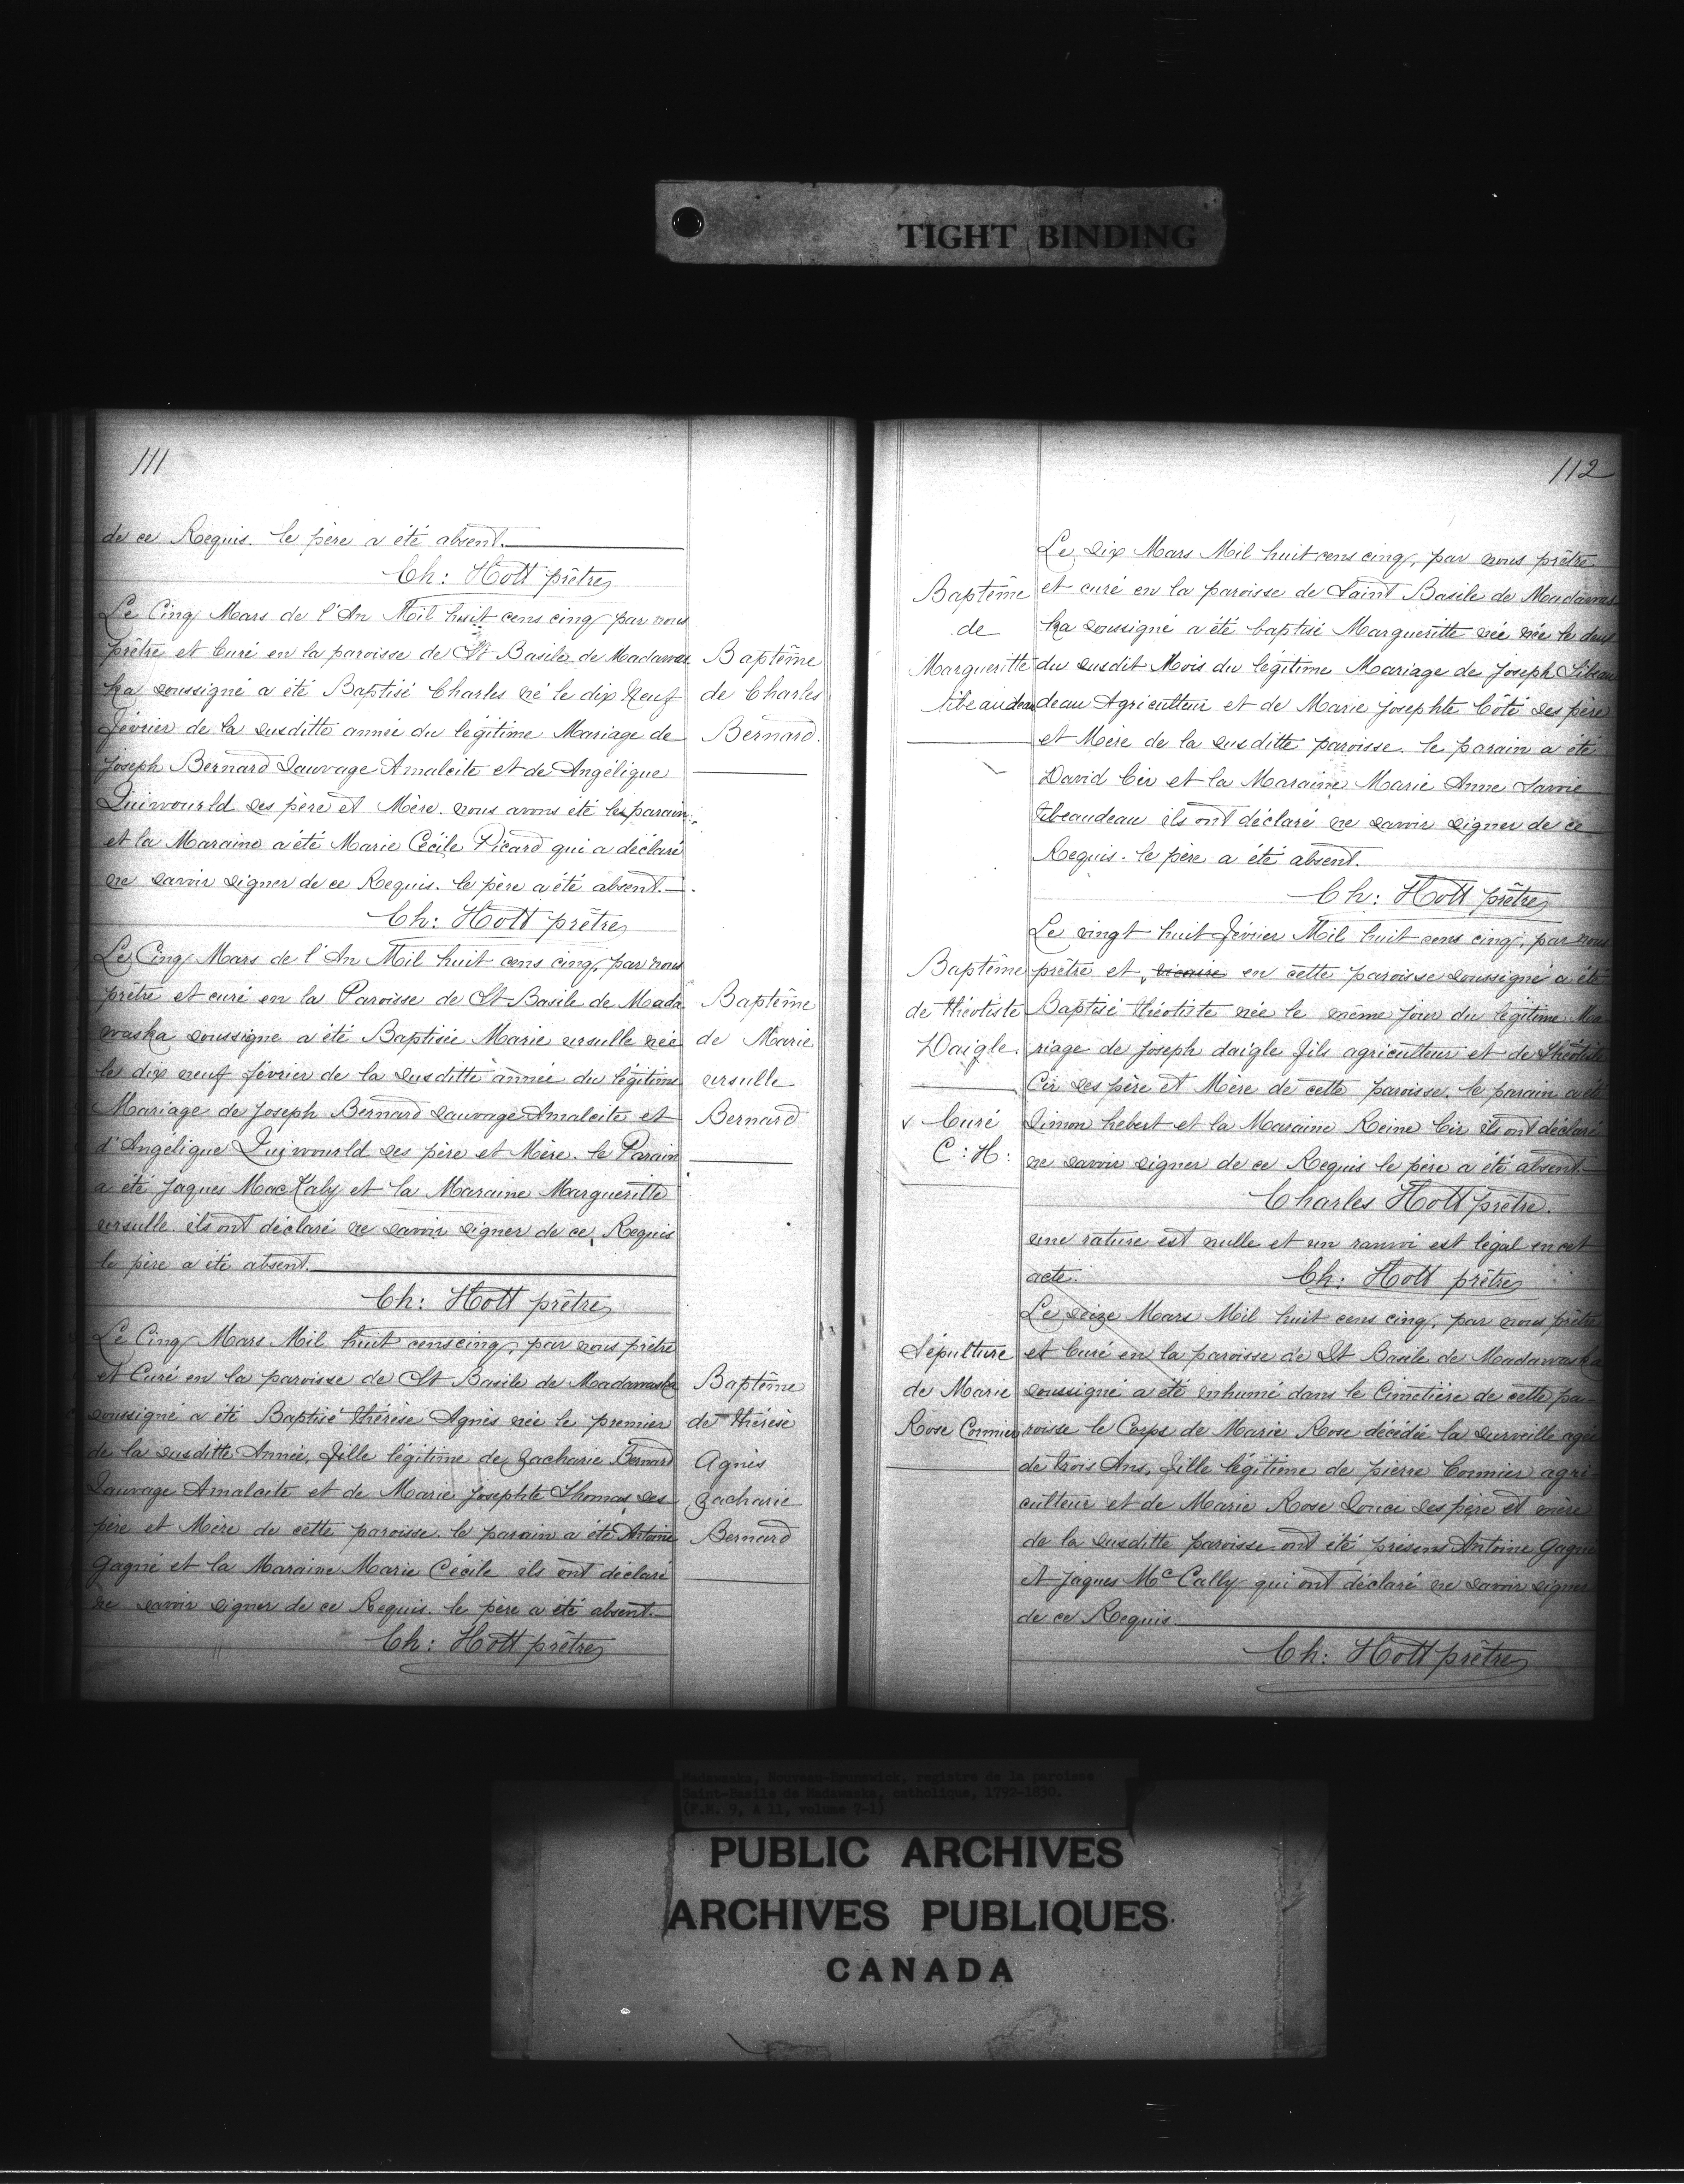 TIGHT BINDING
111
de ce Requis. le père a été absent.
Ch: Hott prêtre
Le Cinq Mars de l'An Mil huit cens cinq par nous
prêtre et Curé en la paroisse de St Basile de Madawas
ka soussigné a été Baptisé Charles né le dix neuf
février de la susditte année du légitime Mariage de
Joseph Bernard Sauvage Amalcite et de Angélique
Quiwourld ses père et Mère. nous avons été le parain
et la Maraine a été Marie Cécile Picard qui a déclaré
ne savoir signer de ce Requis. le père a été absent.
Ch: Hott prêtre
Baptême
de Charles
Bernard.
Le Cinq Mars de l'An Mil huit cens cinq, par nous
prêtre et curé en la Paroisse de St Basile de Mada
waska soussigné a été Baptisée Marie ursulle née
le dix neuf février de la susditte année du légitime
Mariage de Joseph Bernard sauvage Amalcite et
d'Angélique Quiwourld ses père et Mère. le Parain
a été Jaques MacKaly et la Maraine Margueritte
ursulle. ils ont déclaré ne savoir signer de ce Requis
le père a été absent.
Ch: Hott prêtre
Baptême
de Marie
ursulle
Bernard
Le Cinq Mars Mil huit cens cinq, par nous prêtre
et Curé en la paroisse de St Basile de Madawaska
soussigné a été Baptisé thérèse Agnès née le premier
de la susditte Année, fille légitime de zacharie Bernard
Sauvage Amalcite et de Marie Josephte Thomas ses
père et Mère de cette paroisse. le parain a été Antoine
Gagné et la Maraine Marie Cécile ils ont déclaré
ne savoir signer de ce Requis. le père a été absent.
Ch: Hott prêtre
Baptême
de thérèse
Agnès
zacharie
Bernard
112
Le dix Mars Mil huit cens cinq, par nous prêtre
et curé en la paroisse de Saint Basile de Madawas
ka soussigné a été baptisé Margueritte née née le deux
du susdit Mois du légitime Mariage de Joseph Tibeau
deau Agriculteur et de Marie Josephte Côté ses père
et Mère de la susditte paroisse. le parain a été
David Cir et la Maraine Marie Anne Savoie
tibeaudeau ils ont déclaré ne savoir signer de ce
Requis. le père a été absent.
Ch: Hott prêtre
Baptême
de
Margueritte
tibeaudeau
Le vingt huit février Mil huit cens cinq, par nous
prêtre et vicaire en cette paroisse soussigné a été
Baptisé théotiste née le même jour du légitime Ma
riage de Joseph daigle fils agriculteur et de Théotiste
Cir ses père et Mère de cette paroisse. le parain a été
Simon hebert et la Maraine Reine Cir ils ont déclaré
ne savoir signer de ce Requis le père a été absent.
Charles Hott prêtre.
une rature est nulle et un ranvoi est légal en cet
acte.
Ch: Hott prêtre
Baptême
de théotiste
Daigle.
v Curé
C: H:
Le seize Mars Mil huit cens cinq, par nous prêtre
et Curé en la paroisse de St Basile de Madawaska
soussigné a été inhumé dans le Cimetière de cette pa-
roisse le Corps de Marie Rose décédée la surveille agée
de trois Ans, fille légitime de pierre Cormier agri-
culteur et de Marie Rose Souci ses père et mère
de la susditte paroisse ont été présens Antoine Gagné
et Jaques Mc Cally qui ont déclaré ne savoir signer
de ce Requis.
Ch: Hott prêtre
Sépulture
de Marie
Rose Cormier
Madawaska, Nouveau-Brunswick, registre de la paroisse
Saint-Basile de Madawaska, catholique, 1792-1830.
(F.M. 9, A 11, volume 7-1)
PUBLIC ARCHIVES
ARCHIVES PUBLIQUES
CANADA